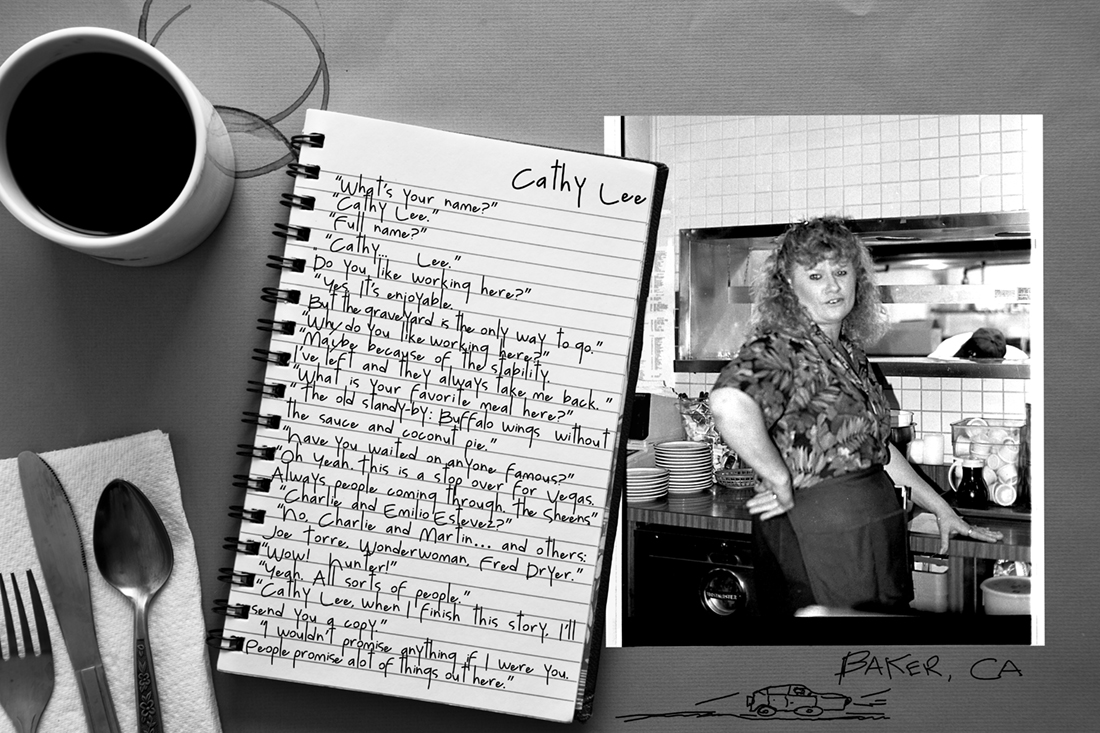 Cathy Lee
"What's your name?"
"Cathy Lee."
"Full name?"
"Cathy... Lee."
"Do you like working here?"
"Yes, it's enjoyable.
But the graveyard is the only way to go."
"Why do you like working here?"
"Maybe because of the stability.
I've left and they always take me back."
"What is your favorite meal here?"
"The old standy-by: Buffalo wings without
the sauce and coconut pie."
"Have you waited on anyone famous?"
"Oh yeah, this is a stop over for Vegas.
Always people coming through. The Sheens"
"Charlie and Emilio Estevez?"
"No, Charlie and Martin... and others:
Joe Torre, Wonderwoman, Fred Dryer."
"Wow! Hunter!"
"Yeah. All sorts of people."
"Cathy Lee, when I finish this story, I'll
send you a copy."
"I wouldn't promise anything if I were you.
People promise alot of things out here."
BAKER, CA